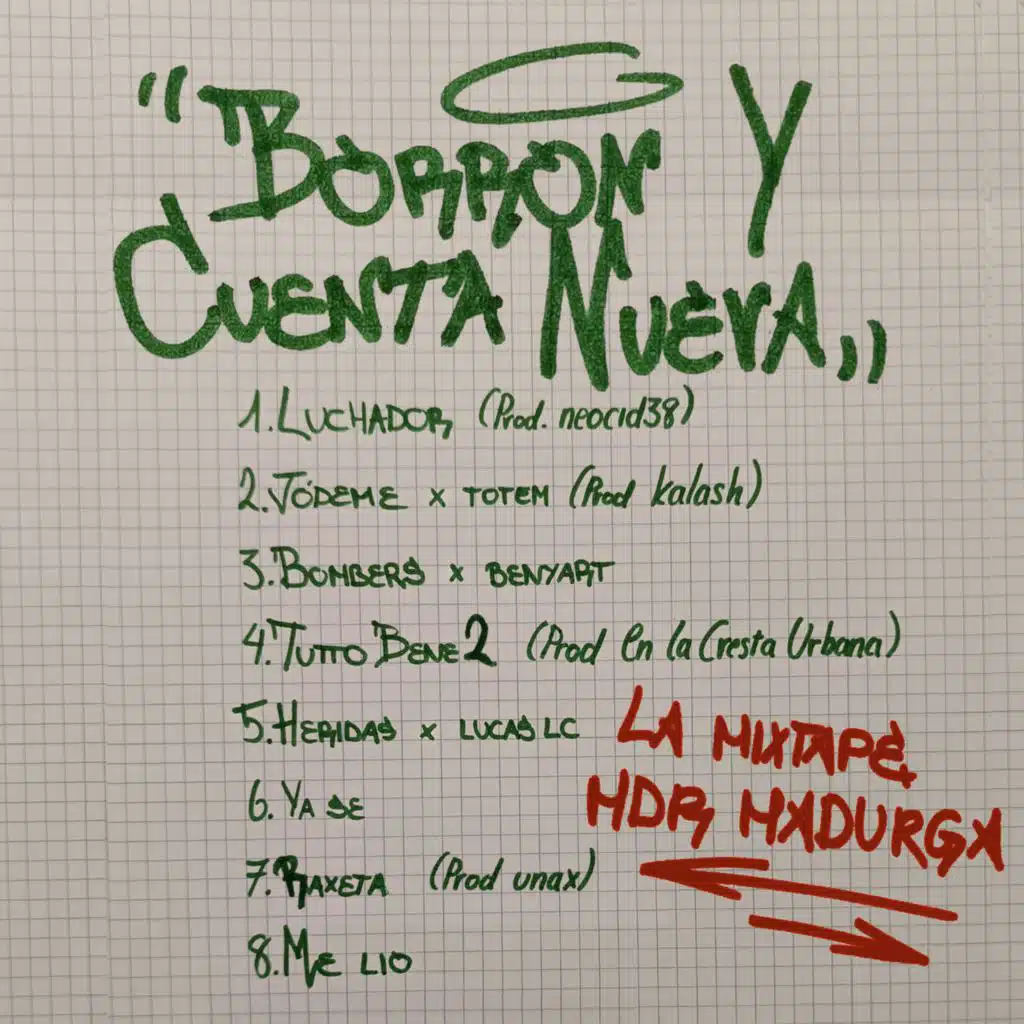 "BORRON Y
CUENTA NUEVA"
1. LUCHADOR (Prod. neocid38)
2. JÓDEME x TOTEM (Prod kalash)
3. BOMBERS x BENYART
4. TUTTO BENE 2 (Prod En la Cresta Urbana)
5. HERIDAS x LUCAS LC
6. YA SE
7. RAXETA (Prod unax)
8. ME LIO
LA MIXTAPE
MDR MXDURGX